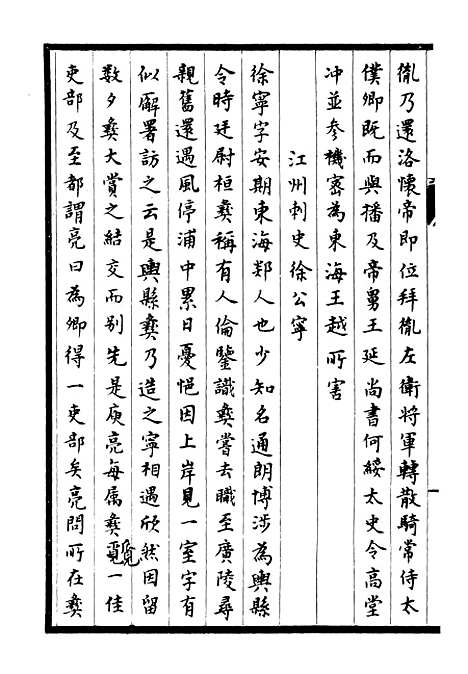 胤乃還洛懷帝即位拜胤左衛將軍轉散騎常侍太
僕卿既而與播及帝舅王延尚書何綏太史令高堂
冲並參機密為東海王越所害
江州刺史徐公寧
徐寧字安期東海郯人也少知名通朗博涉為輿縣
令時廷尉桓彝稱有人倫鑒識彝嘗去職至廣陵尋
親舊還遇風停浦中累日憂悒因上岸見一室宇有
似廨署訪之云是輿縣彝乃造之寧相遇欣然因留
數夕彝大賞之結交而別先是庾亮每屬彝覔一佳
吏部及至都謂亮曰為卿得一吏部矣亮問所在彝